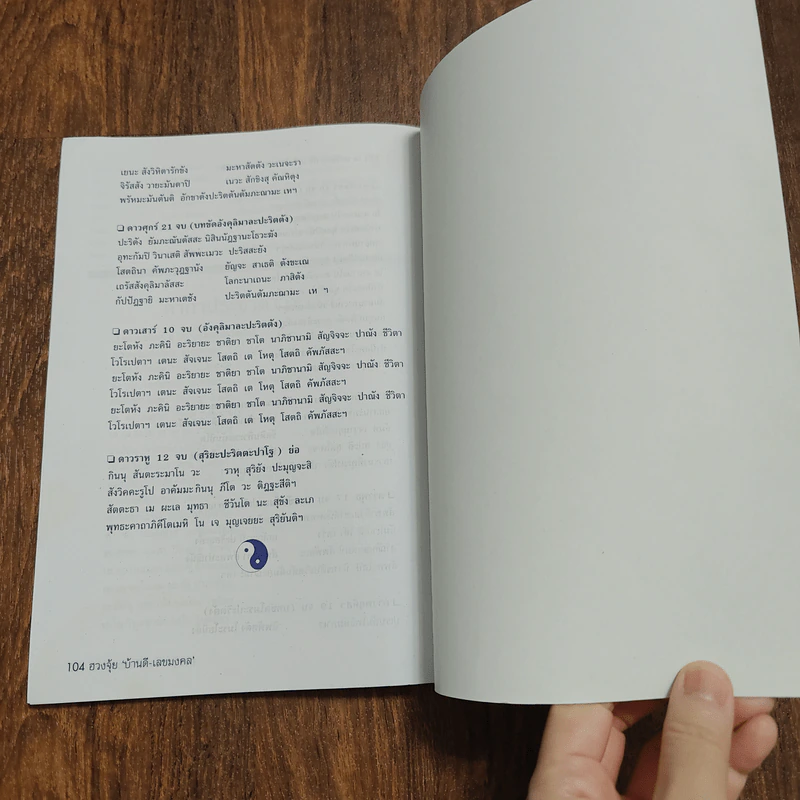 เยนะ สังวิหิตารักขัง มะหาสัตตัง วะเนจะรา
จิรัสสัง วายะมันตาปิ เนวะ สักขิงสุ คัณหิตุง
พรัหมะมันตันติ อักขาตังปะริตตันตัมภะณามะ เหฯ
❑ ดาวศุกร์ 21 จบ (บทขัดอังคุลิมาละปะริตตัง)
ปะริตัง ยัมภะณันตัสสะ นิสินนัฎฐานะโธวะนัง
อุทะกัมปิ วินาเสติ สัพพะเมวะ ปะริสสะยัง
โสตถินา คัพภะวุฎฐานัง ยัญจะ สาเธติ ตังขะเณ
เถรัสสังคุลิมาลัสสะ โลกะนาเถนะ ภาสิตัง
กัปปัฎฐายิ มะหาเตชัง ปะริตตันตัมภะณามะ เห ฯ
❑ ดาวเสาร์ 10 จบ (อังคุลิมาละปะริตตัง)
ยะโตหัง ภะคินิ อะริยายะ ชาติยา ชาโต นาภิชานามิ สัญจิจจะ ปาณัง ชีวิตา
โวโรเปตาฯ เตนะ สัจเจนะ โสตถิ เต โหตุ โสตถิ คัพภัสสะฯ
ยะโตหัง ภะคินิ อะริยายะ ชาติยา ชาโต นาภิชานามิ สัญจิจจะ ปาณัง ชีวิตา
โวโรเปตาฯ เตนะ สัจเจนะ โสตถิ เต โหตุ โสตถิ คัพภัสสะฯ
ยะโตหัง ภะคินิ อะริยายะ ชาติยา ชาโต นาภิชานามิ สัญจิจจะ ปาณัง ชีวิตา
โวโรเปตาฯ เตนะ สัจเจนะ โสตถิ เต โหตุ โสตถิ คัพภัสสะฯ
❑ ดาวราหู 12 จบ (สุริยะปะริตตะปาโฐ ) ย่อ
กินนุ สันตะระมาโน วะ ราหุ สุริยัง ปะมุญจะสิ
สังวิคคะรูโป อาคัมมะ กินนุ ภีโต วะ ติฎฐะสีติฯ
สัตตะธา เม ผะเล มุทธา ชีวันโต นะ สุขัง ละเภ
พุทธะคาถาภิคีโตเมหิ โน เจ มุญเจยยะ สุริยันติฯ
104 ฮวงจุ้ย 'บ้านดี-เลขมงคล'